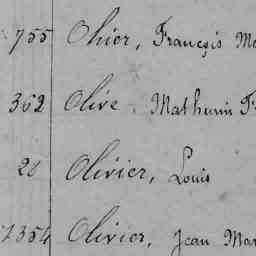 755 Ohier, François
362 Olive, Mathurin
28 Olivier, Louis
354 Olivier, Jean